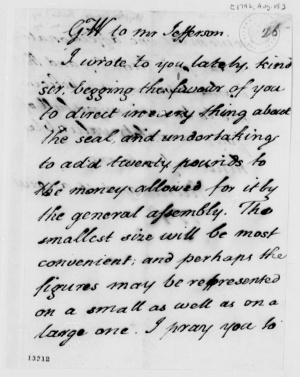 GW to Mr Jefferson.
26
I wrote to you lately, kind
sir, begging the favour of you
to direct in every thing about
the seal, and undertaking
to add twenty pounds to
the money allowed for it by
the general assembly. The
smallest size will be most
convenient; and perhaps the
figures may be represented
on a small as well as on a
large one. I pray you to
13212